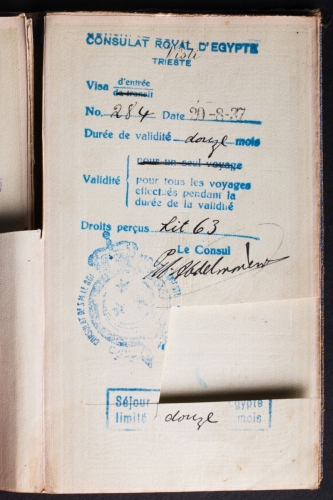 CONSULAT ROYAL D'EGYPTE
TRIESTE
Visa d'entrée
de transit
No. 284 Date 20-8-37
Durée de validité douze mois
pour un seul voyage
Validité pour tous les voyages
effectués pendant la
durée de la validité
Droits perçus Lit 63
Le Consul
CONSULAT DE S.M. LE ROI
Séjour Egypte
limité douze mois